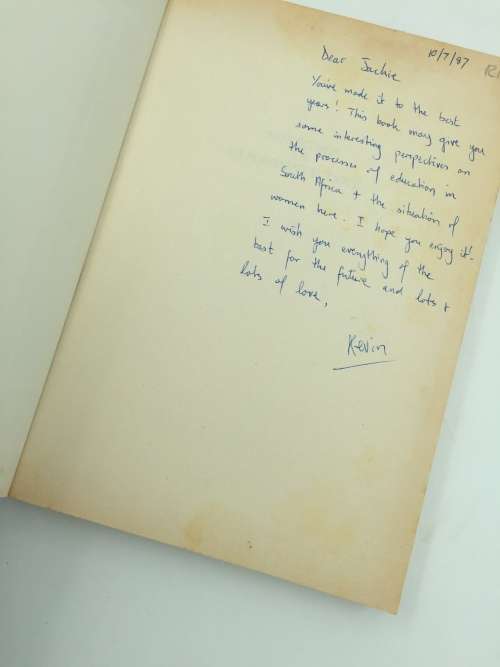 10/7/97
Dear Jackie
You've made it to the best
years! This book may give you
some interesting perspectives on
the processes of education in
South Africa + the situation of
women here. I hope you enjoy it!
I wish you everything of the
best for the future and lots +
lots of love,
Kevin